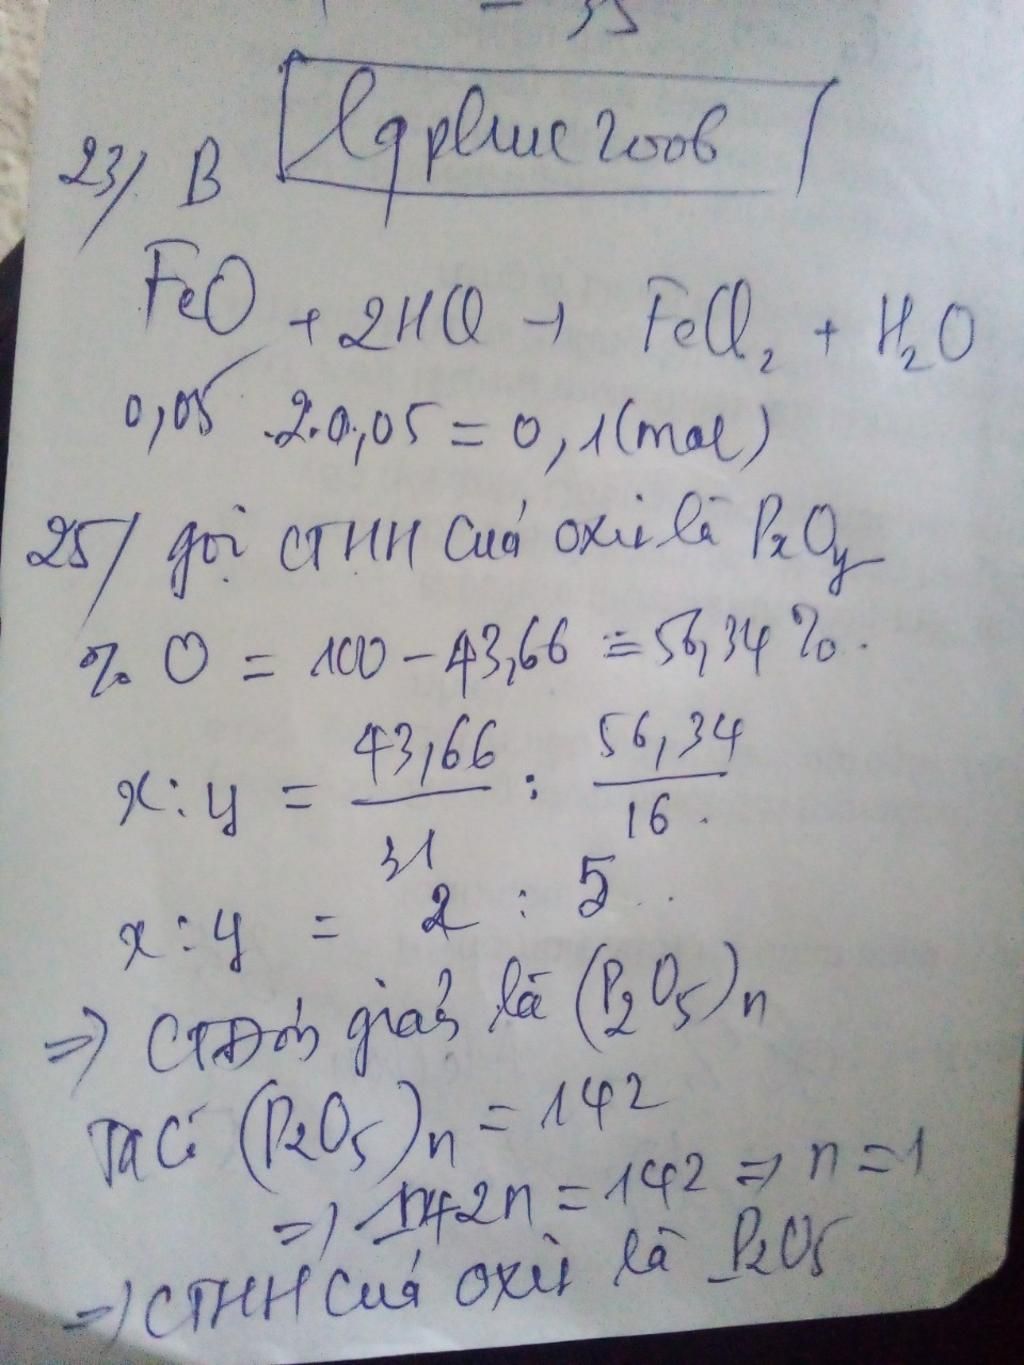 = 35
lqphuc2006
23/ B
FeO + 2HCl → FeCl₂ + H₂O
0,05 2.0,05 = 0,1(mol)
25/ gọi CTHH của oxit là PxOy
% O = 100 - 43,66 = 56,34 %.
x : y = 43,66/31 : 56,34/16
x : y = 2 : 5
=> CTĐơn giản là (P₂O₅)n
Ta có (P₂O₅)n = 142
=> 142n = 142 => n = 1
=> CTHH của oxit là P₂O₅